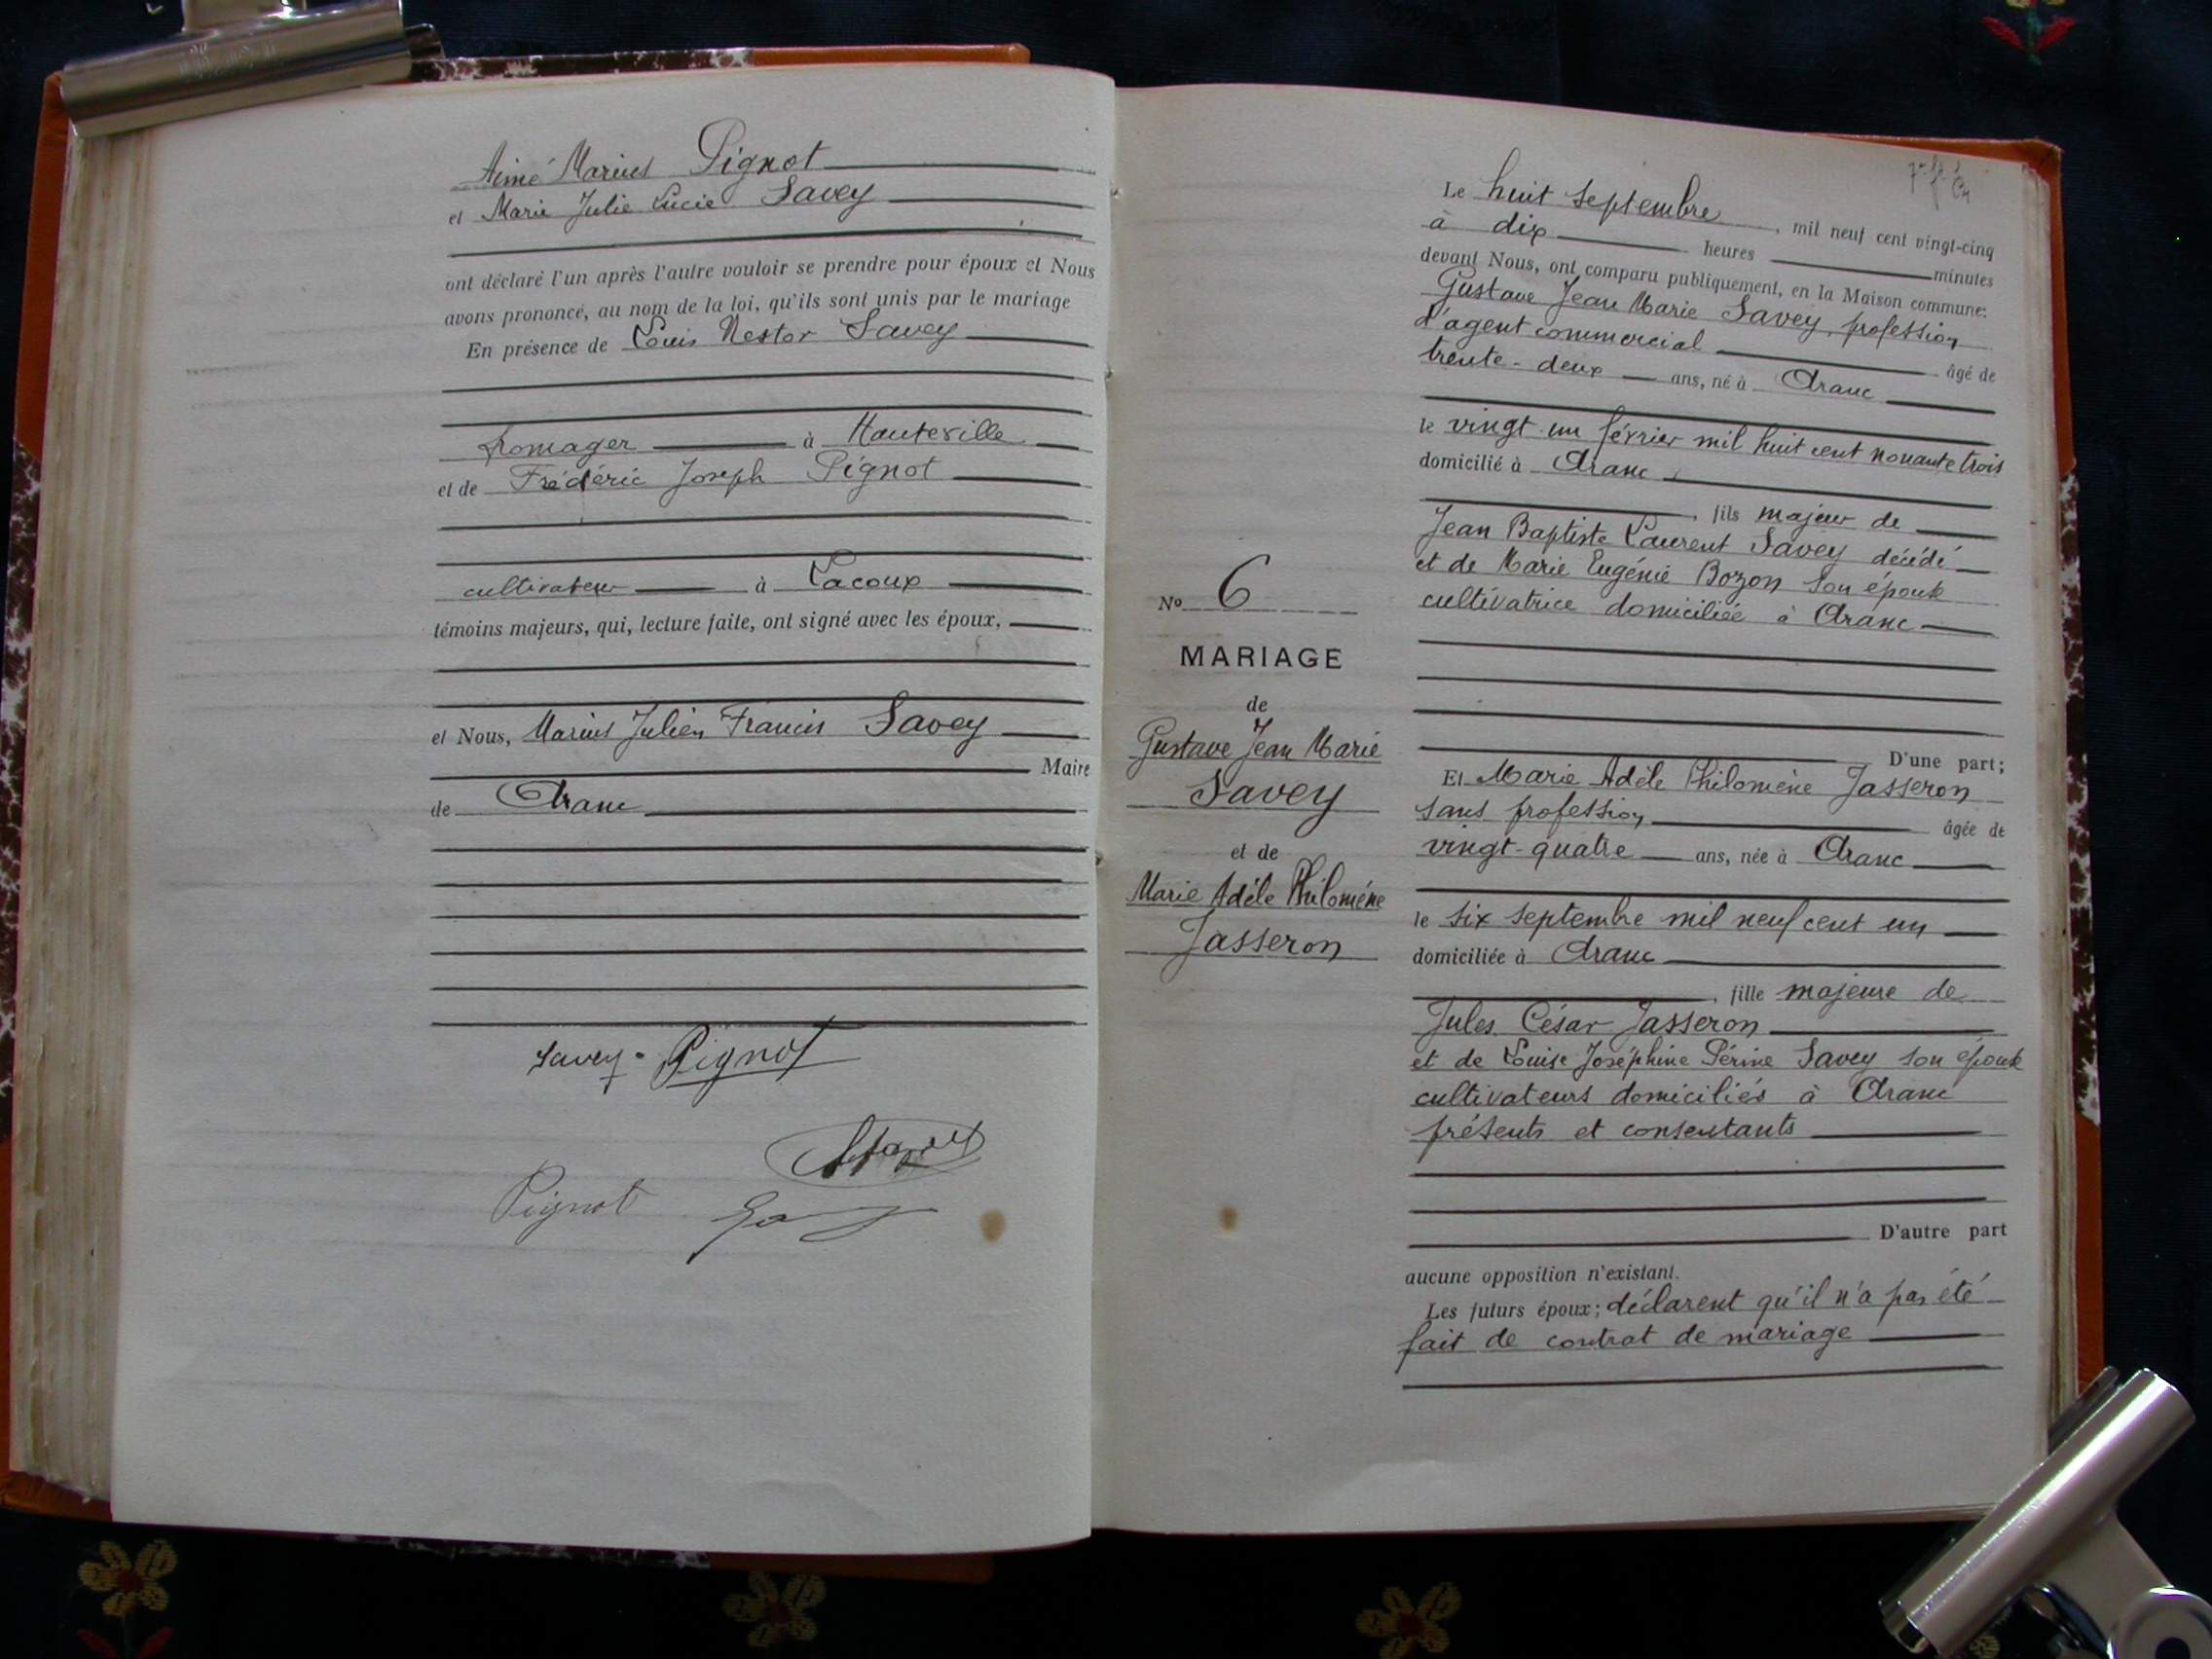 Aimé Marius Pignot
et Marie Julie Lucie Savey
ont déclaré l'un après l'autre vouloir se prendre pour époux et Nous
avons prononcé, au nom de la loi, qu'ils sont unis par le mariage
En présence de Louis Nestor Savey
fromager à Hauteville
et de Frédéric Joseph Pignot
cultivateur à Lacoux
témoins majeurs, qui, lecture faite, ont signé avec les époux,
et Nous, Marius Julien Francis Savey
Maire
de Aranc
Savey Pignot
Pignot
No 6
MARIAGE
de
Gustave Jean Marie
Savey
et de
Marie Adèle Philomène
Jasseron
Le huit septembre, mil neuf cent vingt-cinq
à dix heures minutes
devant Nous, ont comparu publiquement, en la Maison commune:
Gustave Jean Marie Savey, profession
d'agent commercial âgé de
trente-deux ans, né à Aranc
le vingt un février mil huit cent nonante trois
domicilié à Aranc
, fils majeur de
Jean Baptiste Laurent Savey décédé
et de Marie Eugénie Bozon son épouse
cultivatrice domiciliée à Aranc
D'une part;
Et Marie Adèle Philomène Jasseron
sans profession âgée de
vingt-quatre ans, née à Aranc
le six septembre mil neuf cent un
domiciliée à Aranc
, fille majeure de
Jules César Jasseron
et de Louise Joséphine Périne Savey son épouse
cultivateurs domiciliés à Aranc
présents et consentants
D'autre part
aucune opposition n'existant.
Les futurs époux; déclarent qu'il n'a pas été
fait de contrat de mariage